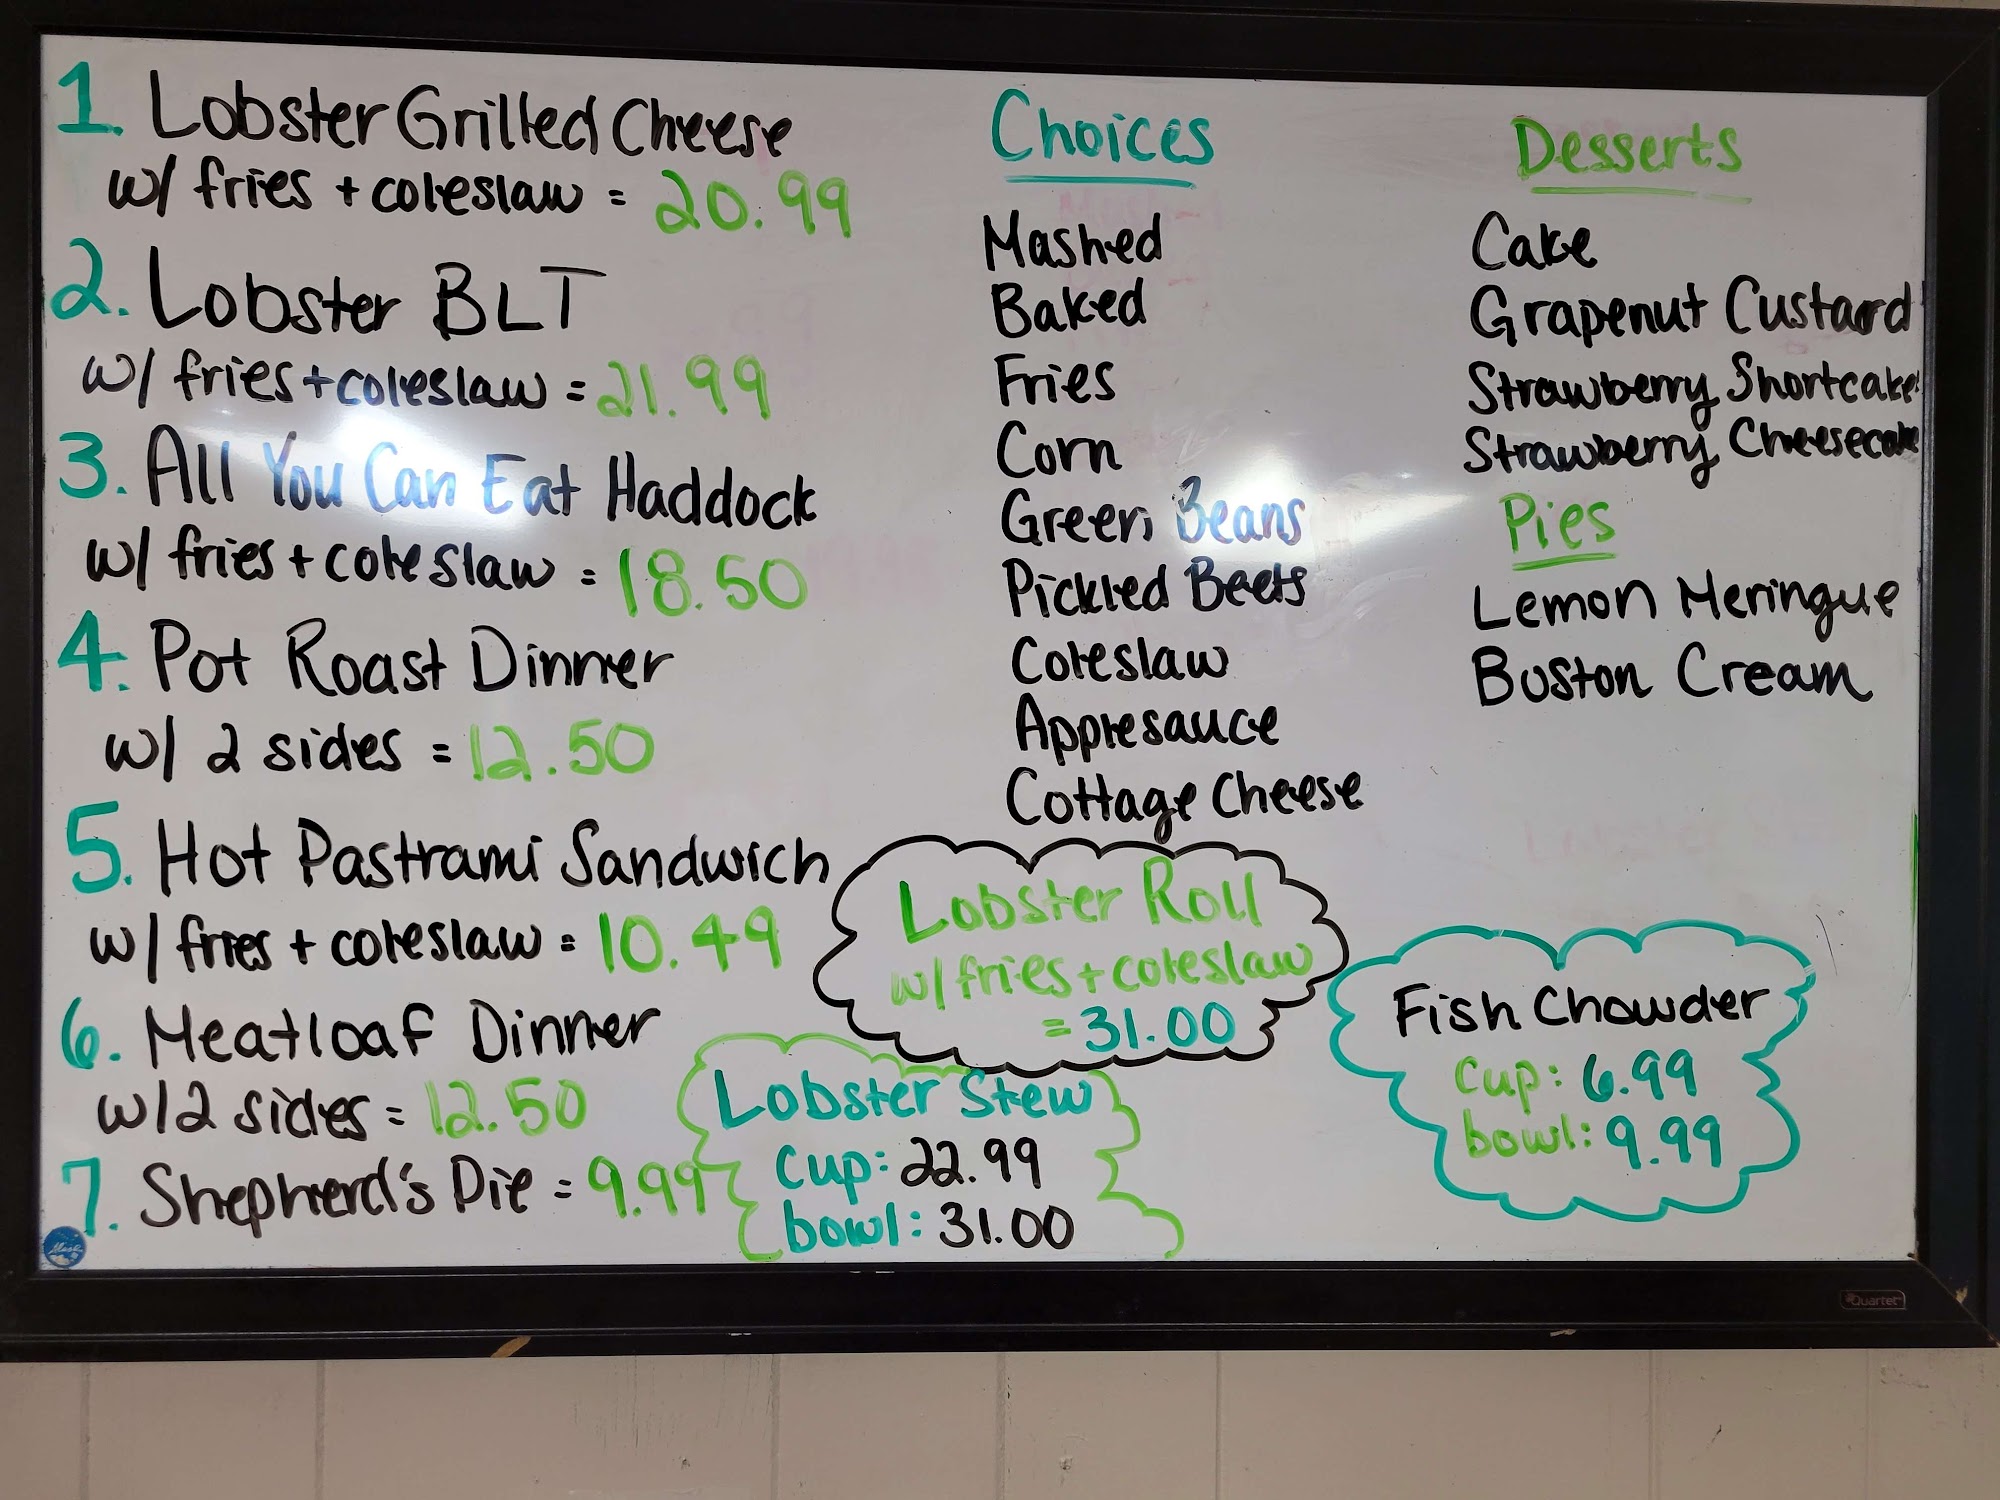 1. Lobster Grilled Cheese
w/ fries + coleslaw = 20.99
2. Lobster BLT
w/ fries + coleslaw = 21.99
3. All You Can Eat Haddock
w/ fries + coleslaw = 18.50
4. Pot Roast Dinner
w/ 2 sides = 12.50
5. Hot Pastrami Sandwich
w/ fries + coleslaw = 10.49
6. Meatloaf Dinner
w/ 2 sides = 12.50
7. Shepherd's Pie = 9.99
Choices
Mashed
Baked
Fries
Corn
Green Beans
Pickled Beets
Coleslaw
Applesauce
Cottage Cheese
Desserts
Cake
Grapenut Custard
Strawberry Shortcake
Strawberry Cheesecake
Pies
Lemon Meringue
Boston Cream
Lobster Roll
w/ fries + coleslaw
= 31.00
Lobster Stew
cup: 22.99
bowl: 31.00
Fish Chowder
cup: 6.99
bowl: 9.99
Quartet